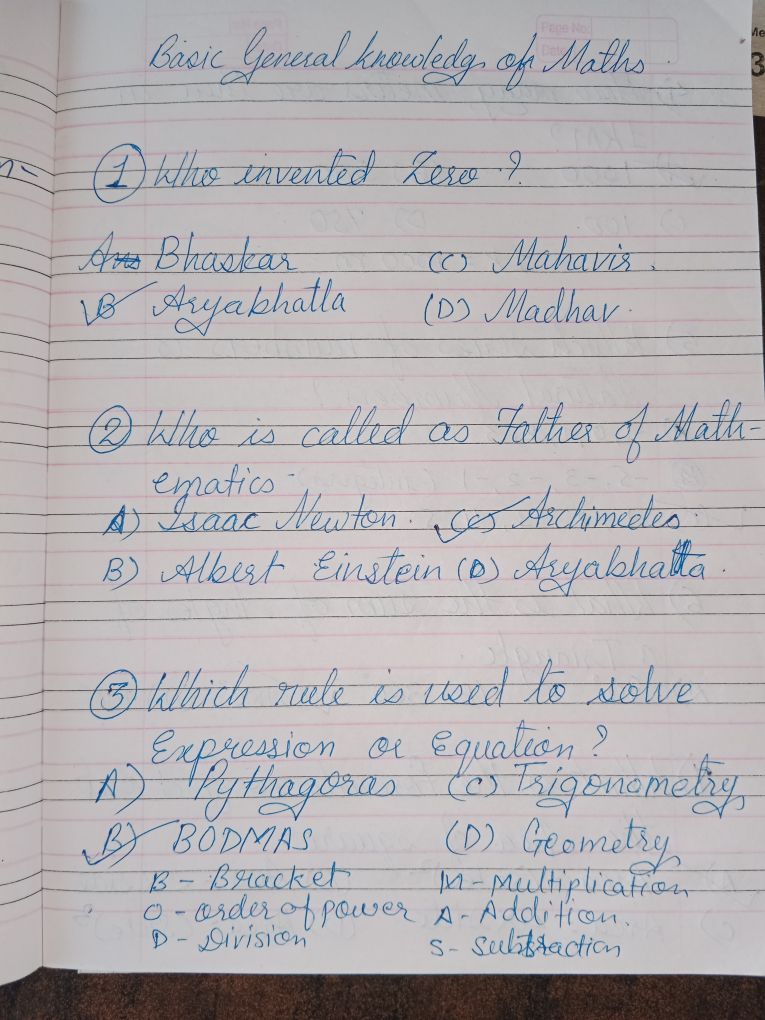 Page No.
Date
Me
3
Basic General knowledge of Maths.
① Who invented Zero ?
Ans Bhaskar (C) Mahavir.
B Aryabhatta (D) Madhav.
② Who is called as Father of Math-
ematics
A) Isaac Newton. (C) Archimedes.
B) Albert Einstein (D) Aryabhatta.
③ Which rule is used to solve
Expression or Equation ?
A) Pythagoras (C) Trigonometry
B) BODMAS (D) Geometry
B - Bracket M - Multiplication
O - order of power A - Addition.
D - Division S - Subtraction